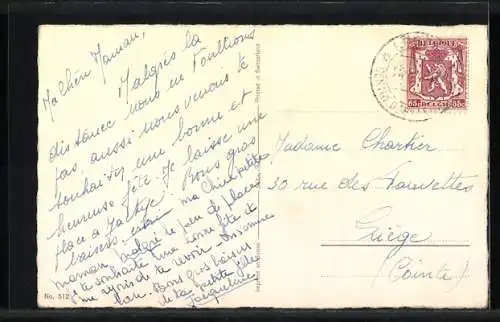 Ma Chère Maman,
Malgrès la
distance nous ne t'oublions
pas, aussi nous venons te
souhaiter une bonne et
heureuse fête. Je laisse une
place à Jackye. Bons gros
baisers. ma Chère petite
maman, malgré le peu de place
je te souhaite une bonne fête et
me réjouis de te revoir
Bons gros baisers
de ta petite fille
Jacqueline
No. 512
Printed in Switzerland
BELGIQUE
65c BELGIE 65c
Madame Chartier
30 rue des Fauvettes
Liège
(Cointe)